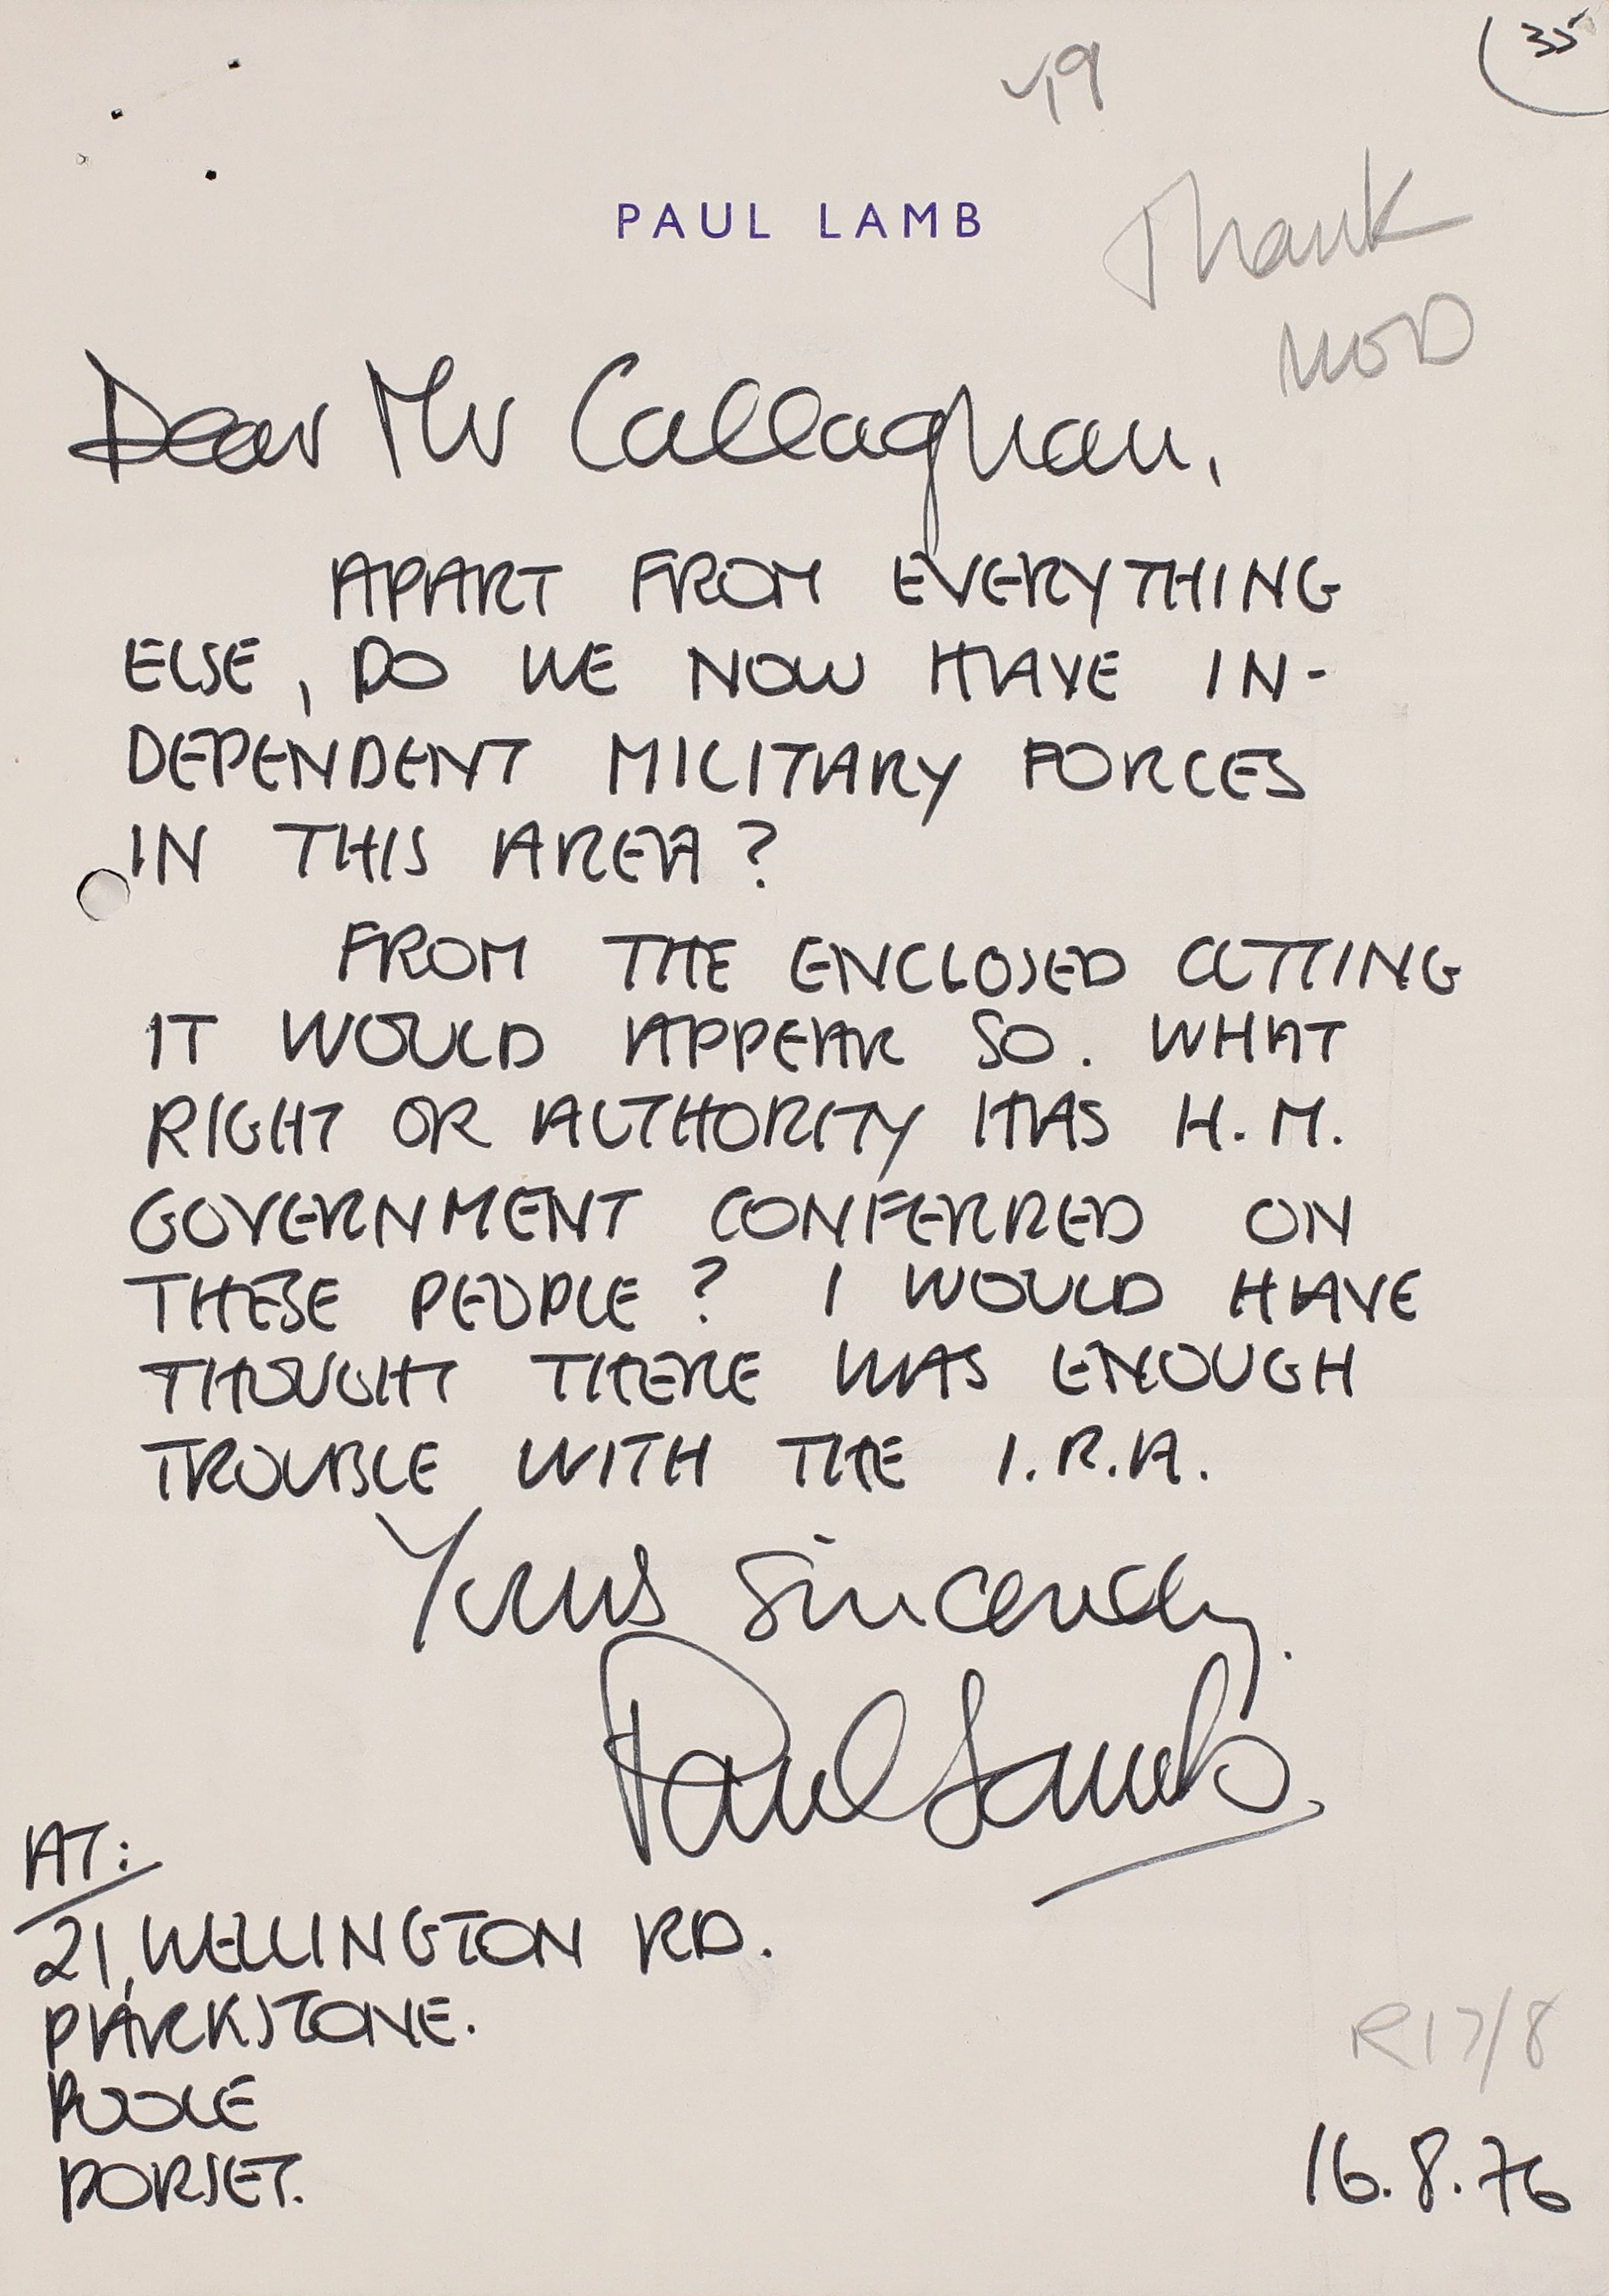 35
PAUL LAMB
Thank
MOD
Dear Mr Callaghan,
APART FROM EVERYTHING
ELSE, DO WE NOW HAVE IN-
DEPENDENT MILITARY FORCES
IN THIS AREA?
FROM THE ENCLOSED CUTTING
IT WOULD APPEAR SO. WHAT
RIGHT OR AUTHORITY HAS H.M.
GOVERNMENT CONFERRED ON
THESE PEOPLE? I WOULD HAVE
THOUGHT THERE WAS ENOUGH
TROUBLE WITH THE I.R.A.
Yours sincerely,
Paul Lamb.
AT:
21, WELLINGTON RD.
PARKSTONE.
POOLE
DORSET.
R17/8
16.8.76